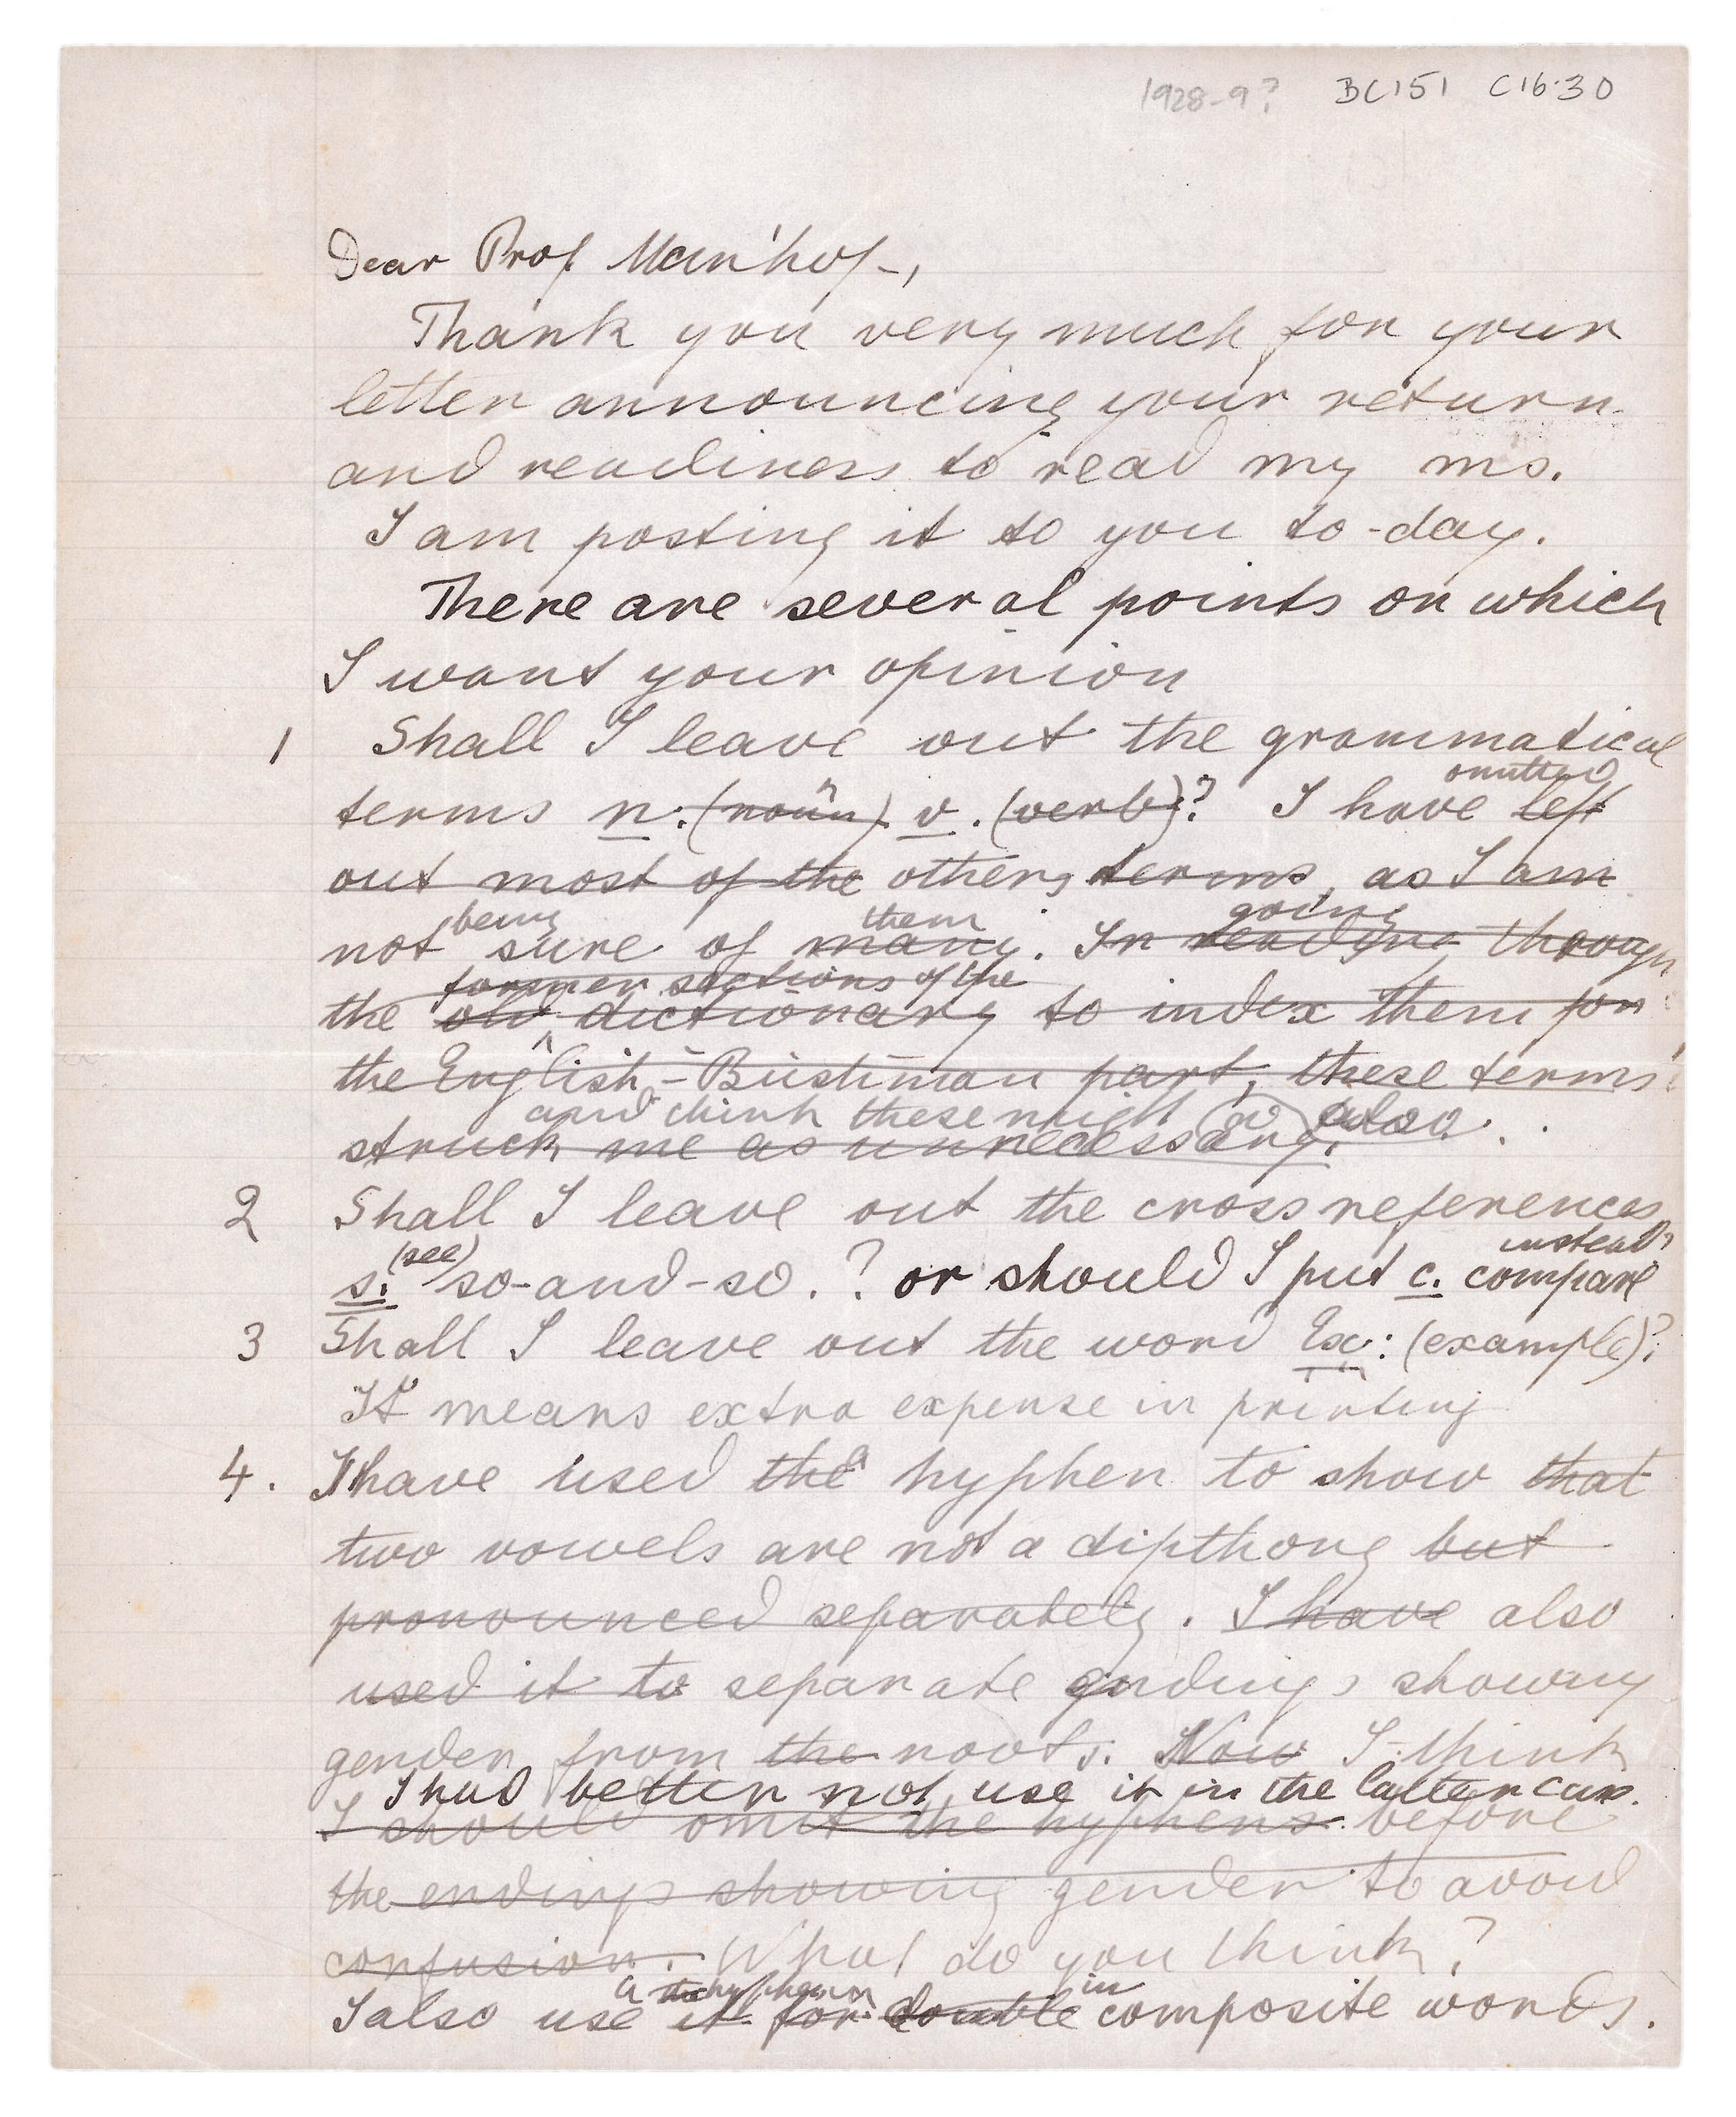 1928-9? BC151 C16.30
Dear Prof. Meinhof,
Thank you very much for your
letter announcing your return
and readiness to read my ms.
I am posting it to you to-day.
There are several points on which
I want your opinion
1 Shall I leave out the grammatical
omitted
terms n. (noun) v. (verb)? I have left
out most of the others terms, as I am
being them going
not sure of many. In reading through
former sections of the
the old dictionary to index them for
the English-Bushman part, these terms
and think these might go also.
struck me as unnecessary.
2 Shall I leave out the cross references
(see) instead?
s. so-and-so.? or should I put c. compare
3 Shall I leave out the word Ex: (example)?
It means extra expense in printing
4. I have used the a hyphen to show that
two vowels are not a dipthong but
pronounced separately. I have also
used it to separate endings showing
gender from the roots. Now I think
I had better not use it in the latter case.
I should omit the hyphens before
the endings showing gender to avoid
confusion. What do you think?
a the hyphen in
I also use it for double composite words.